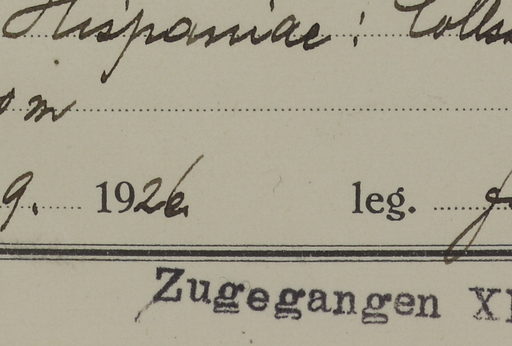 Hispaniae: Colls
m
9. 1926 leg.
Zugegangen XI